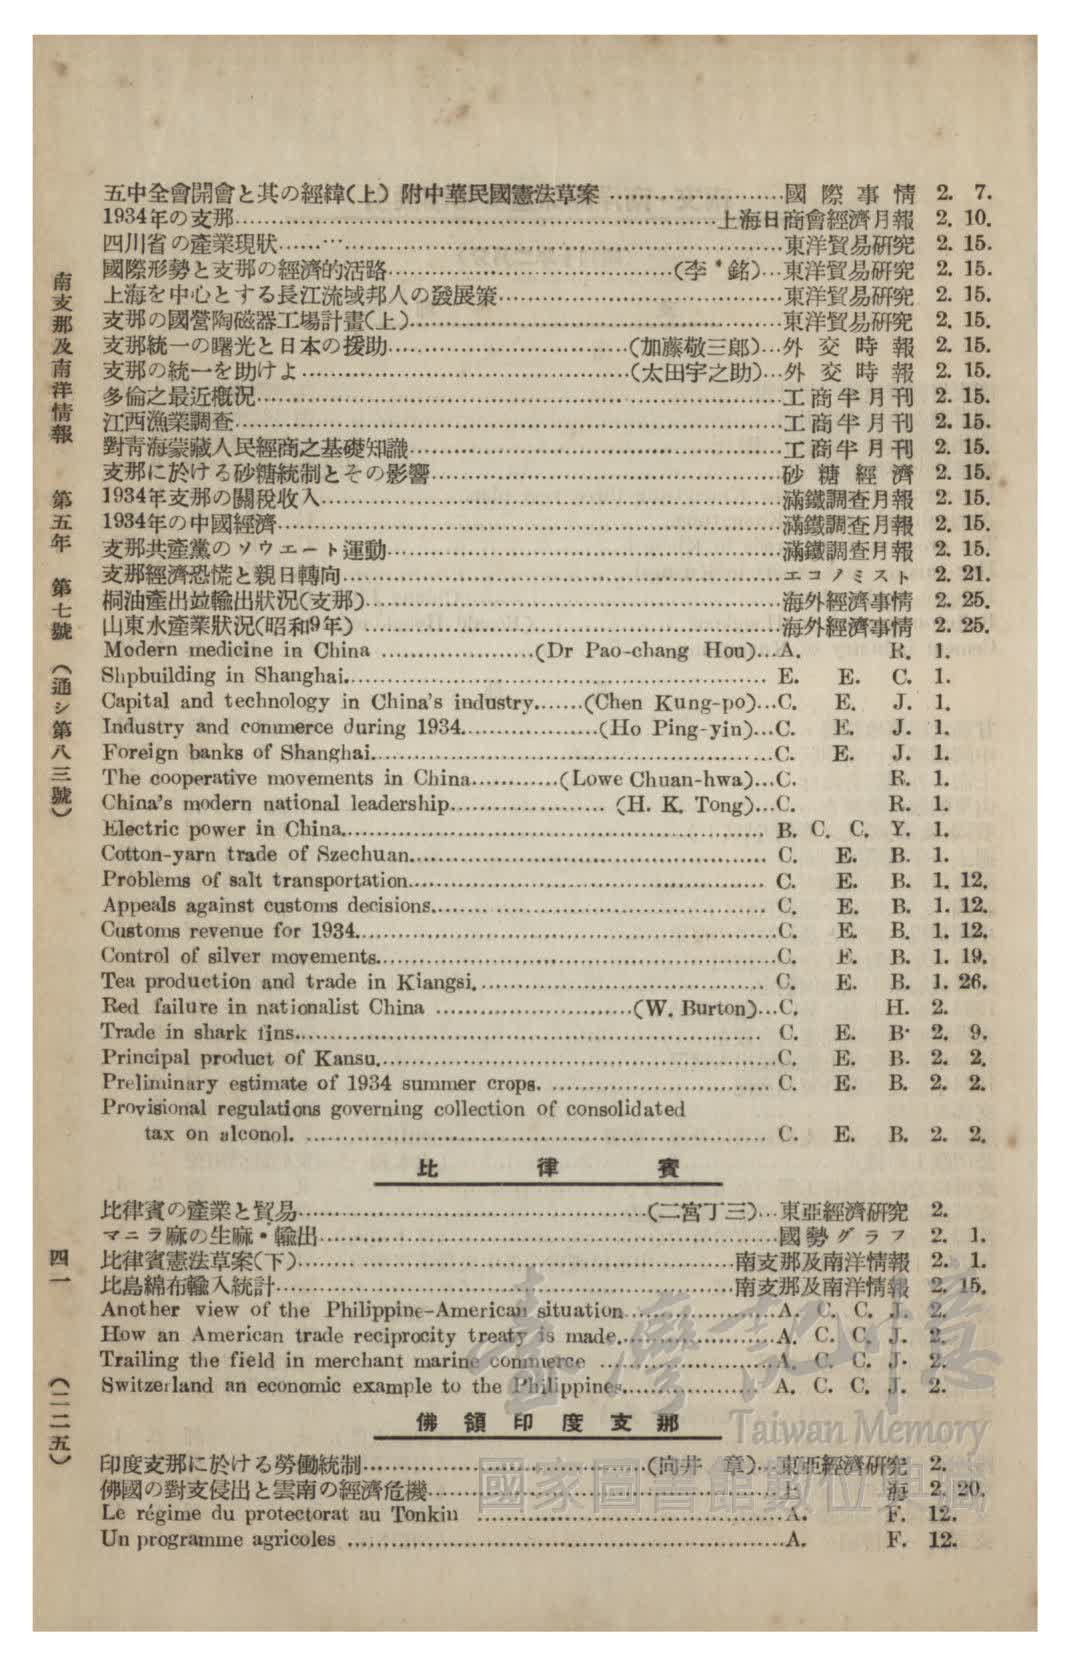 南支那及南洋情報　第五年　第七號　(通シ第八三號)
五中全會開會と其の經緯(上) 附中華民國憲法草案 ……國際事情 2. 7.
1934年の支那……上海日商會經濟月報 2. 10.
四川省の產業現狀……東洋貿易研究 2. 15.
國際形勢と支那の經濟的活路……(李・銘)…東洋貿易研究 2. 15.
上海を中心とする長江流域邦人の發展策……東洋貿易研究 2. 15.
支那の國營陶磁器工場計畫(上)……東洋貿易研究 2. 15.
支那統一の曙光と日本の援助……(加藤敬三郎)…外交時報 2. 15.
支那の統一を助けよ……(太田宇之助)…外交時報 2. 15.
多倫之最近概況……工商半月刊 2. 15.
江西漁業調查……工商半月刊 2. 15.
對靑海蒙藏人民經商之基礎知識……工商半月刊 2. 15.
支那に於ける砂糖統制とその影響……砂糖經濟 2. 15.
1934年支那の關稅收入……滿鐵調查月報 2. 15.
1934年の中國經濟……滿鐵調查月報 2. 15.
支那共產黨のソウエート運動……滿鐵調查月報 2. 15.
支那經濟恐慌と親日轉向……エコノミスト 2. 21.
桐油產出竝輸出狀況(支那)……海外經濟事情 2. 25.
山東水產業狀況(昭和9年) ……海外經濟事情 2. 25.
Modern medicine in China ……(Dr Pao-chang Hou)…A. R. 1.
Shpbuilding in Shanghai…… E. E. C. 1.
Capital and technology in China's industry……(Chen Kung-po)…C. E. J. 1.
Industry and commerce during 1934……(Ho Ping-yin)…C. E. J. 1.
Foreign banks of Shanghai……C. E. J. 1.
The cooperative movements in China……(Lowe Chuan-hwa)…C. R. 1.
China's modern national leadership…… (H. K. Tong)…C. R. 1.
Electric power in China…… B. C. C. Y. 1.
Cotton-yarn trade of Szechuan…… C. E. B. 1.
Problems of salt transportation…… C. E. B. 1. 12.
Appeals against customs decisions…… C. E. B. 1. 12.
Customs revenue for 1934……C. E. B. 1. 12.
Control of silver movements……C. E. B. 1. 19.
Tea production and trade in Kiangsi…… C. E. B. 1. 26.
Red failure in nationalist China ……(W. Burton)…C. H. 2.
Trade in shark fins…… C. E. B. 2. 9.
Principal product of Kansu……C. E. B. 2. 2.
Preliminary estimate of 1934 summer crops. …… C. E. B. 2. 2.
Provisional regulations governing collection of consolidated
tax on alconol. …… C. E. B. 2. 2.
比律賓
比律賓の產業と貿易……(二宮丁三)…東亞經濟研究 2.
マニラ麻の生麻・輸出……國勢グラフ 2. 1.
比律賓憲法草案(下)……南支那及南洋情報 2. 1.
比島綿布輸入統計……南支那及南洋情報 2. 15.
Another view of the Philippine-American situation……A. C. C. J. 2.
How an American trade reciprocity treaty is made……A. C. C. J. 2.
Trailing the field in merchant marine commerce ……A. C. C. J. 2.
Switzerland an economic example to the Philippines…… A. C. C. J. 2.
佛領印度支那
印度支那に於ける勞働統制……(向井 章)…東亞經濟研究 2.
佛國の對支侵出と雲南の經濟危機……上海 2. 20.
Le régime du protectorat au Tonkin ……A. F. 12.
Un programme agricoles ……A. F. 12.
四一　(二二五)
臺灣記憶
Taiwan Memory
國家圖書館數位典藏